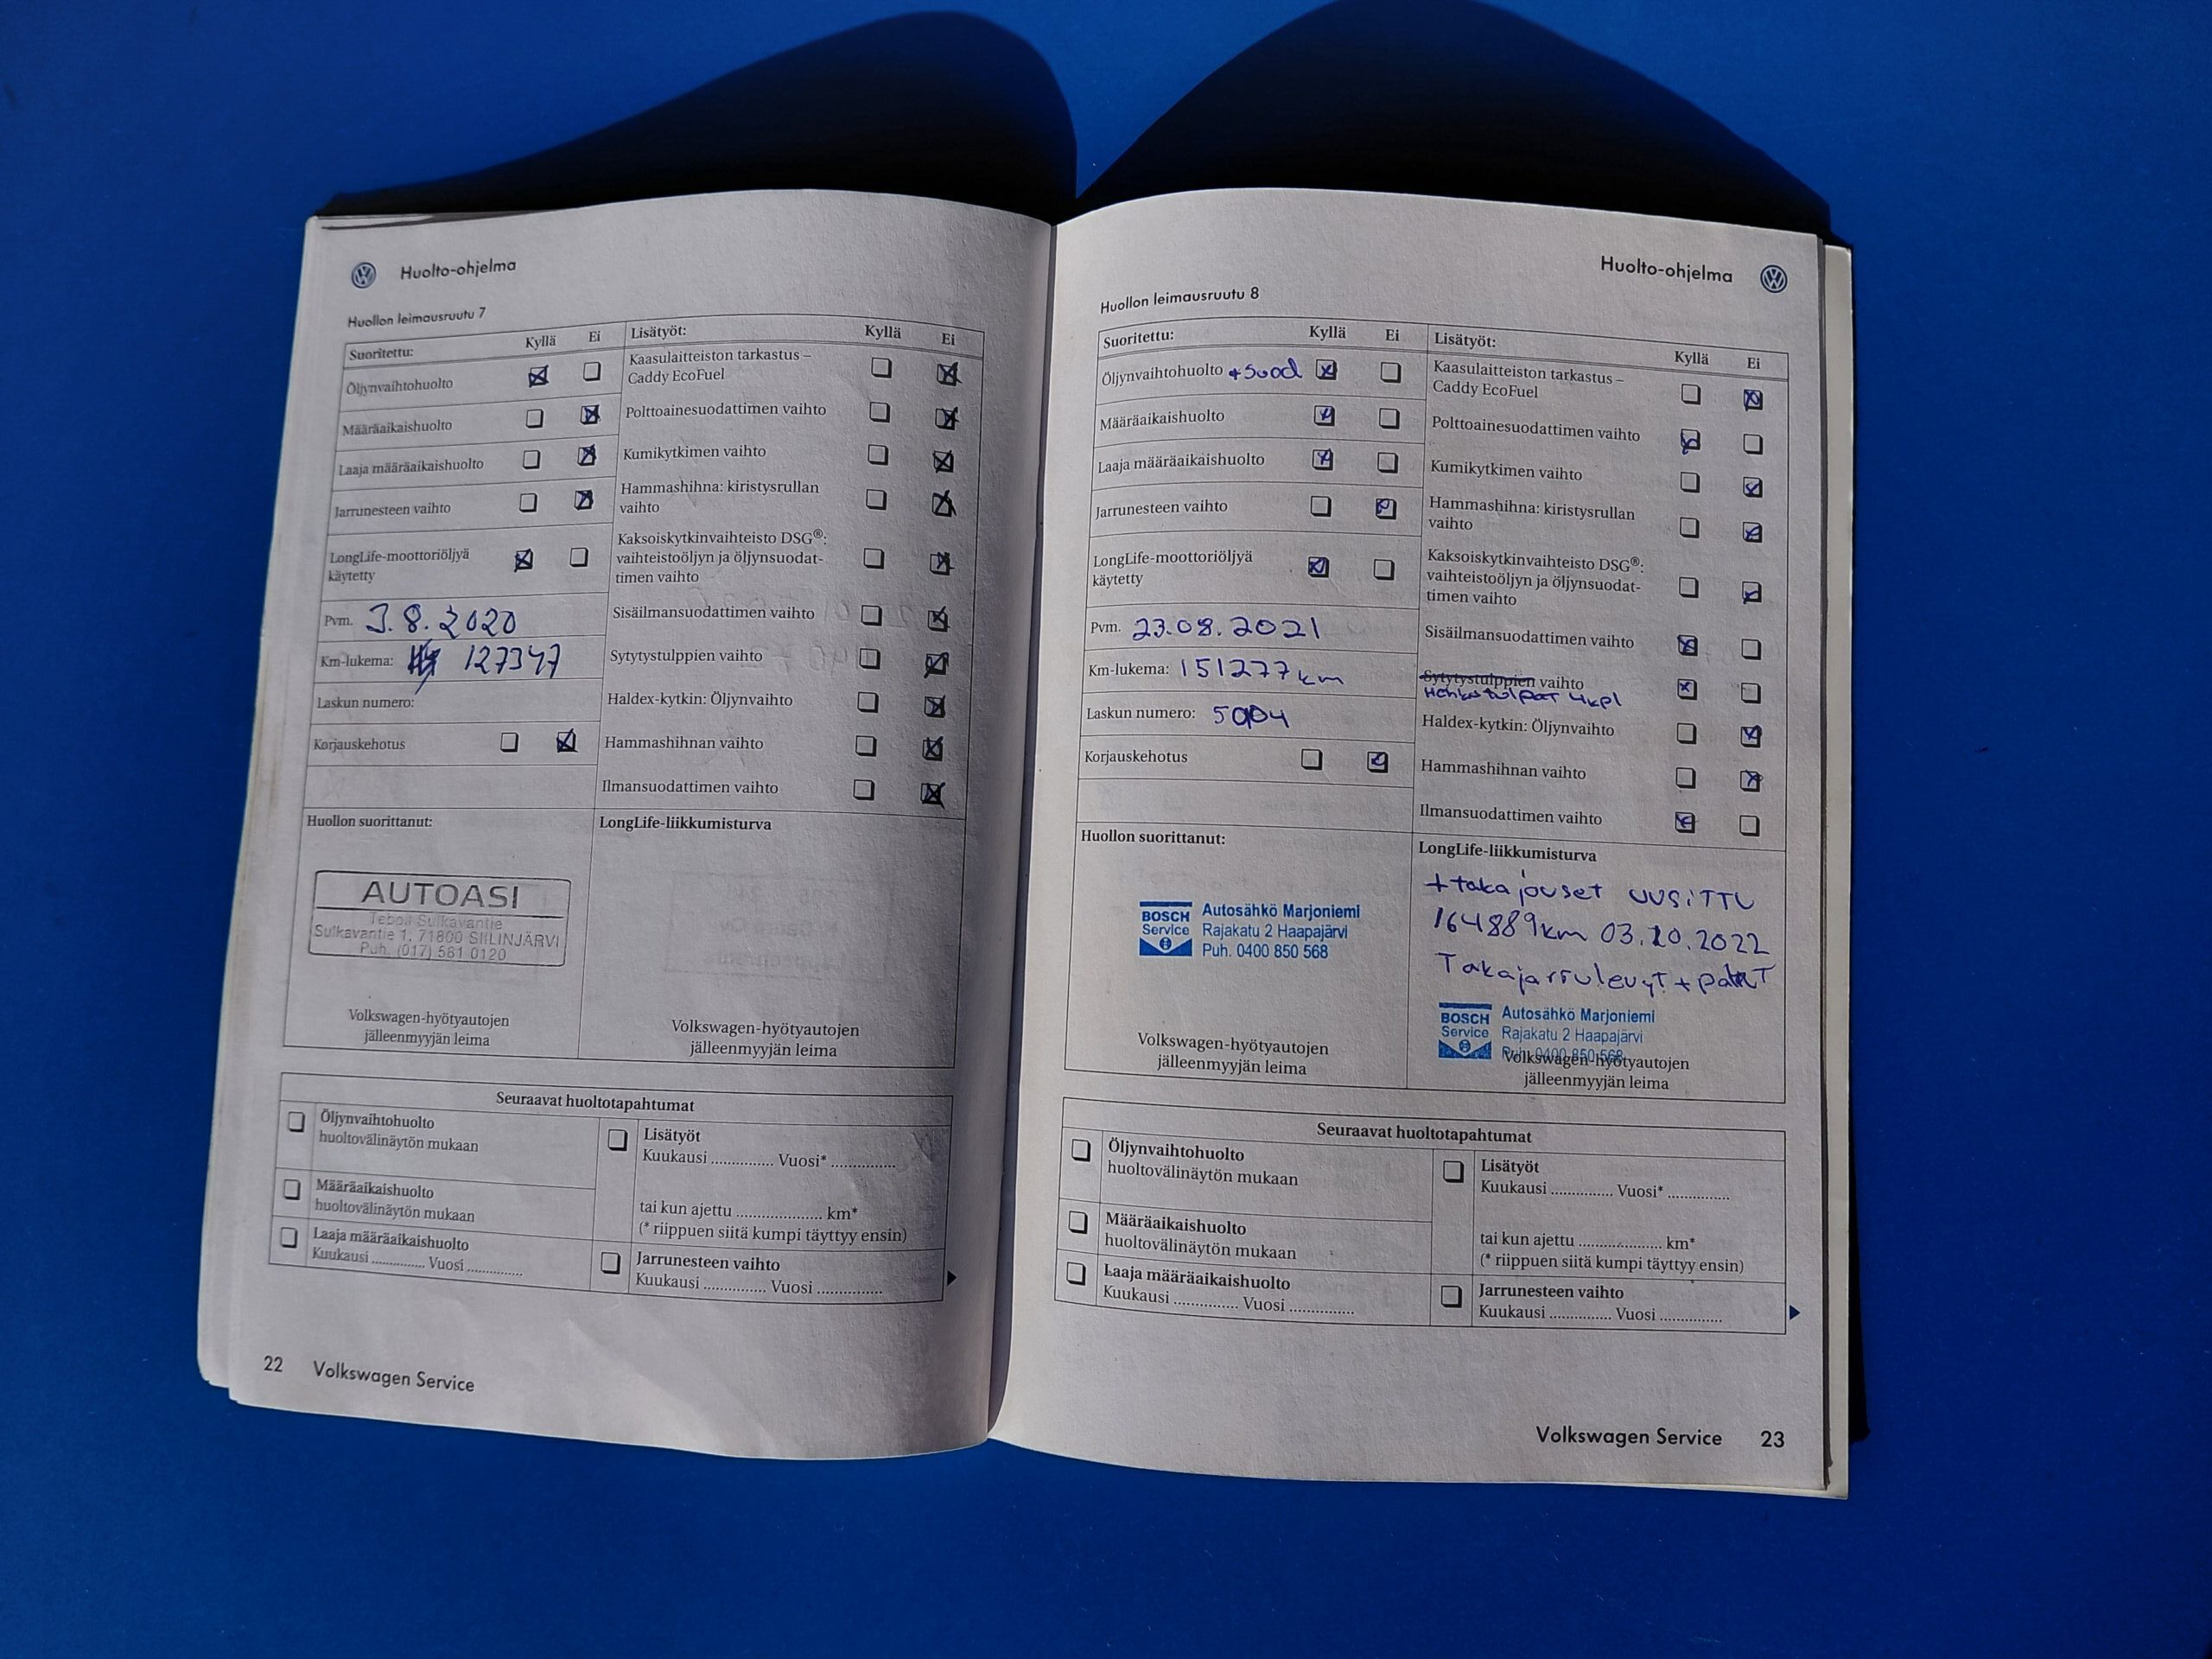 Huolto-ohjelma
Huollon leimausruutu 7
Suoritettu: Kyllä Ei
Öljynvaihtohuolto
Määräaikaishuolto
Laaja määräaikaishuolto
Jarrunesteen vaihto
LongLife-moottoriöljyä
käytetty
Pvm. 3.8.2020
Km-lukema: 127347
Laskun numero:
Korjauskehotus
Lisätyöt: Kyllä Ei
Kaasulaitteiston tarkastus –
Caddy EcoFuel
Polttoainesuodattimen vaihto
Kumikytkimen vaihto
Hammashihna: kiristysrullan
vaihto
Kaksoiskytkinvaihteisto DSG®:
vaihteistoöljyn ja öljynsuodat-
timen vaihto
Sisäilmansuodattimen vaihto
Sytytystulppien vaihto
Haldex-kytkin: Öljynvaihto
Hammashihnan vaihto
Ilmansuodattimen vaihto
Huollon suorittanut:
AUTOASI
Teboil Sulkavantie
Sulkavantie 1, 71800 SIILINJÄRVI
Puh. (017) 581 0120
Volkswagen-hyötyautojen
jälleenmyyjän leima
LongLife-liikkumisturva
Volkswagen-hyötyautojen
jälleenmyyjän leima
Seuraavat huoltotapahtumat
Öljynvaihtohuolto
huoltovälinäytön mukaan
Määräaikaishuolto
huoltovälinäytön mukaan
Laaja määräaikaishuolto
Kuukausi ............... Vuosi ...............
Lisätyöt
Kuukausi ............... Vuosi* ...............
tai kun ajettu ..................... km*
(* riippuen siitä kumpi täyttyy ensin)
Jarrunesteen vaihto
Kuukausi ............... Vuosi ...............
22 Volkswagen Service
Huolto-ohjelma
Huollon leimausruutu 8
Suoritettu: Kyllä Ei
Öljynvaihtohuolto +suod
Määräaikaishuolto
Laaja määräaikaishuolto
Jarrunesteen vaihto
LongLife-moottoriöljyä
käytetty
Pvm. 23.08.2021
Km-lukema: 151277 km
Laskun numero: 5004
Korjauskehotus
Lisätyöt: Kyllä Ei
Kaasulaitteiston tarkastus –
Caddy EcoFuel
Polttoainesuodattimen vaihto
Kumikytkimen vaihto
Hammashihna: kiristysrullan
vaihto
Kaksoiskytkinvaihteisto DSG®:
vaihteistoöljyn ja öljynsuodat-
timen vaihto
Sisäilmansuodattimen vaihto
Sytytystulppien vaihto
Hehkutulpat 4kpl
Haldex-kytkin: Öljynvaihto
Hammashihnan vaihto
Ilmansuodattimen vaihto
Huollon suorittanut:
BOSCH
Service
Autosähkö Marjoniemi
Rajakatu 2 Haapajärvi
Puh. 0400 850 568
Volkswagen-hyötyautojen
jälleenmyyjän leima
LongLife-liikkumisturva
+takajouset uusittu
164889km 03.10.2022
Takajarrulevyt + palat
BOSCH
Service
Autosähkö Marjoniemi
Rajakatu 2 Haapajärvi
Puh. 0400 850 568
Volkswagen-hyötyautojen
jälleenmyyjän leima
Seuraavat huoltotapahtumat
Öljynvaihtohuolto
huoltovälinäytön mukaan
Määräaikaishuolto
huoltovälinäytön mukaan
Laaja määräaikaishuolto
Kuukausi ............... Vuosi ...............
Lisätyöt
Kuukausi ............... Vuosi* ...............
tai kun ajettu ..................... km*
(* riippuen siitä kumpi täyttyy ensin)
Jarrunesteen vaihto
Kuukausi ............... Vuosi ...............
Volkswagen Service 23